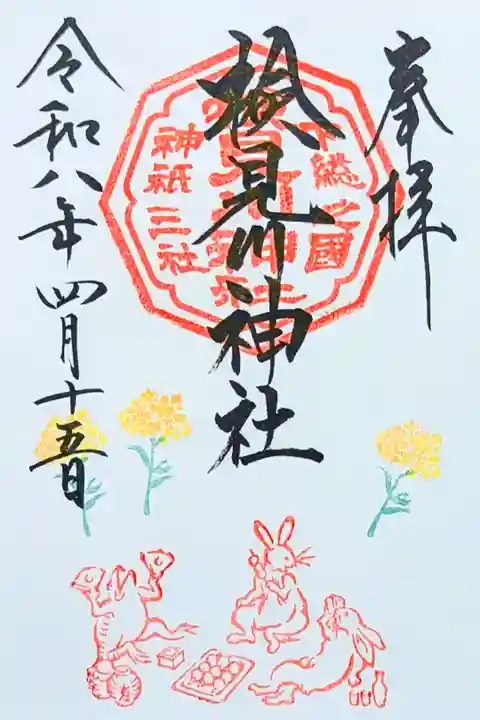 奉拝
下総之國
検見川神社
神祇三社
令和八年四月十五日